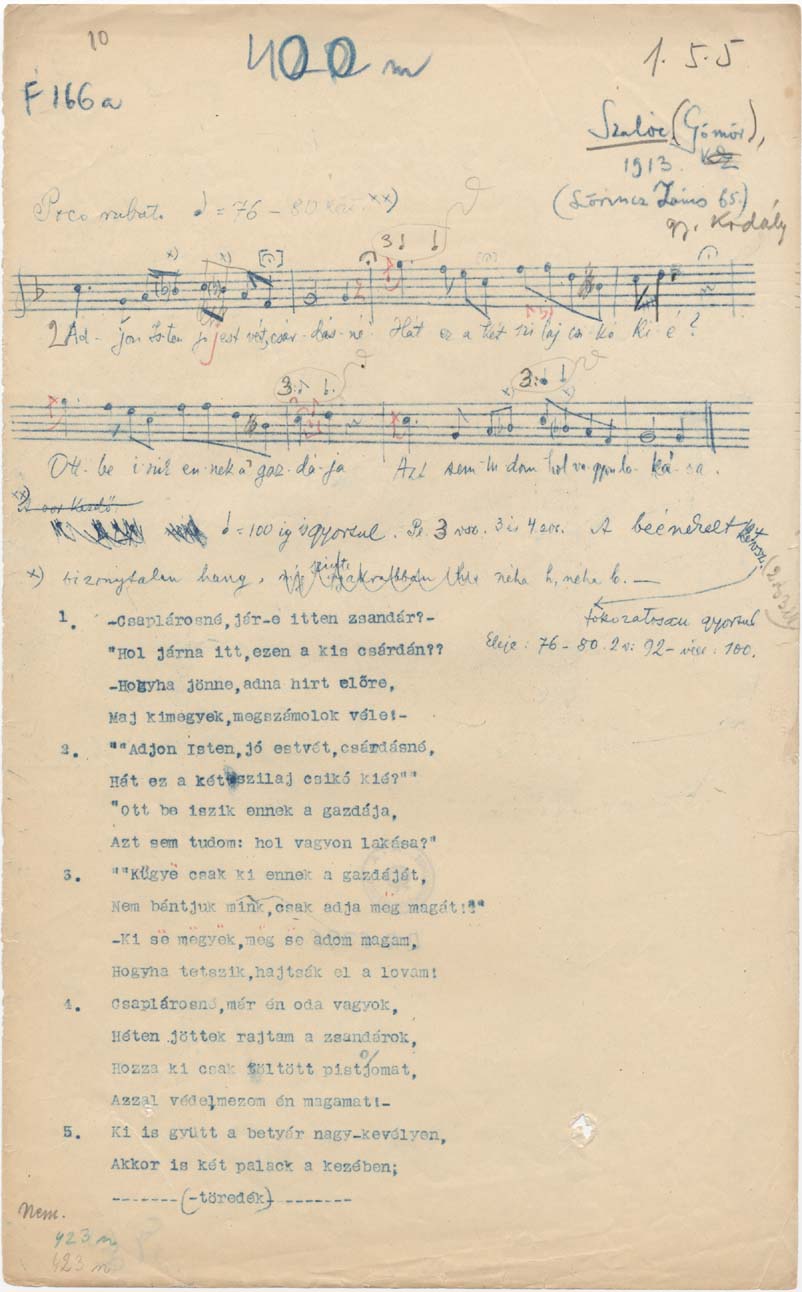 10
400 m
1.5.5
F 166a
Szalóc (Gömör),
1913.
(Lőrincz János 65.)
gy. Kodály
Poco rubato. = 76 - 80
Ad-jon Is-ten jó est vét, csár-dás-né! Hát ez a két szi laj csi-kó ki-é?
Ott be i-szik en-nek a gaz-dá-ja Azt sem tu-dom hol va-gyon la-ká-sa.
= 100 ig is gyorsul. 3 3 és 4 A beénekelt
x) bizonytalan hang, néha h, néha b. —
fokozatosan gyorsul
Eleje: 76-80. 2 v: 92- vége: 100.
1. -Csaplárosné,jár-e itten zsandár?-
"Hol járna itt,ezen a kis csárdán??
-Hogyha jönne,adna hirt előre,
Maj kimegyek,megszámolok véle!-
2. ""Adjon Isten,jó estvét,csárdásné,
Hát ez a két szilaj csikó kié?""
"Ott be iszik ennek a gazdája,
Azt sem tudom: hol vagyon lakása?"
3. ""Kügye csak ki ennek a gazdáját,
Nem bántjuk mink,csak adja még magát!""
-Ki së mëgyëk,mëg së adom magam,
Hogyha tetszik,hajtsák el a lovam!
4. Csaplárosné,már én oda vagyok,
Héten jöttek rajtam a zsandárok,
Hozza ki csak töltött pistjomat,
Azzal védelmezom én magamat!-
5. Ki is gyütt a betyár nagy-kevélyen,
Akkor is két palack a kezében;
-------(-töredék) -------
Nem.
423 n
423 n